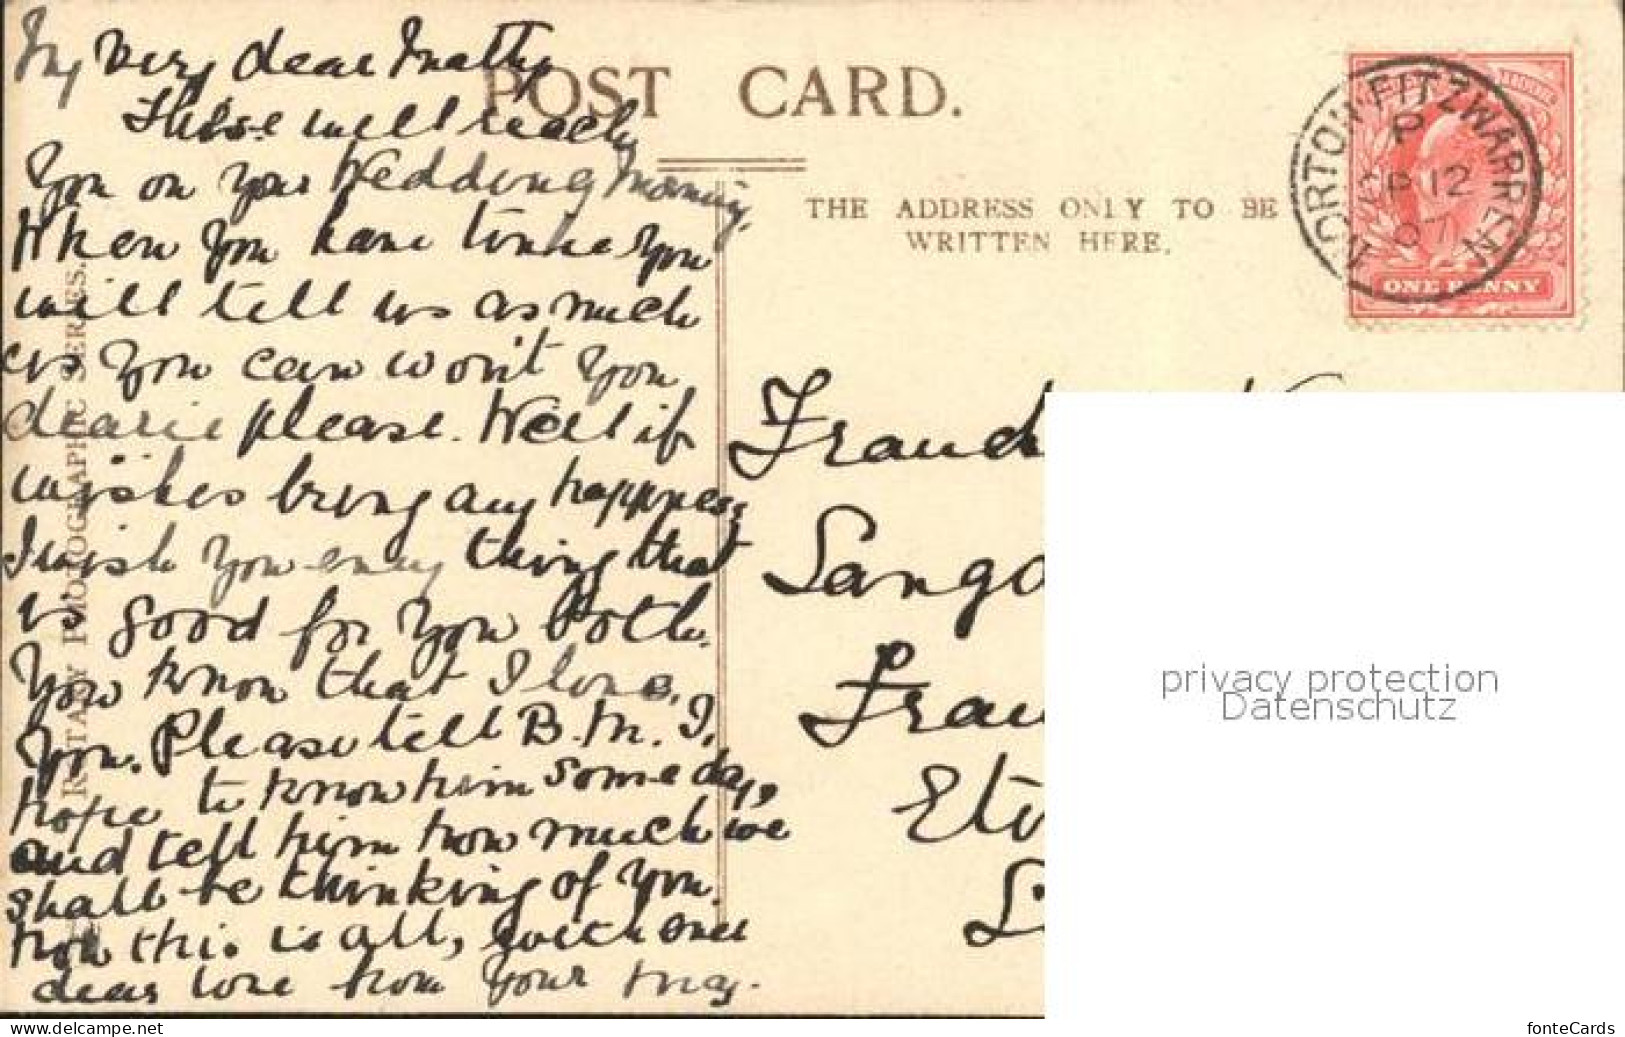 My very dear Matty
These will reach
You on your Wedding Morning.
When you have time you
will tell us as much
as you can won't you
dearie please. Well if
wishes bring any happiness
I wish you every thing that
is good for you both.
You know that I love
you. Please tell B. M. I
hope to know him some day,
and tell him how much we
shall be thinking of you.
now this is all, with
dear love from your
POST CARD.
THE ADDRESS ONLY TO BE
WRITTEN HERE.
PHOTOGRAPHIC SERIES.
NORTON FITZWARREN
P
SP 12
07
ONE PENNY
privacy protection
Datenschutz
© by https://oldthing.de/oldthing-AK-Shop
fonteCards